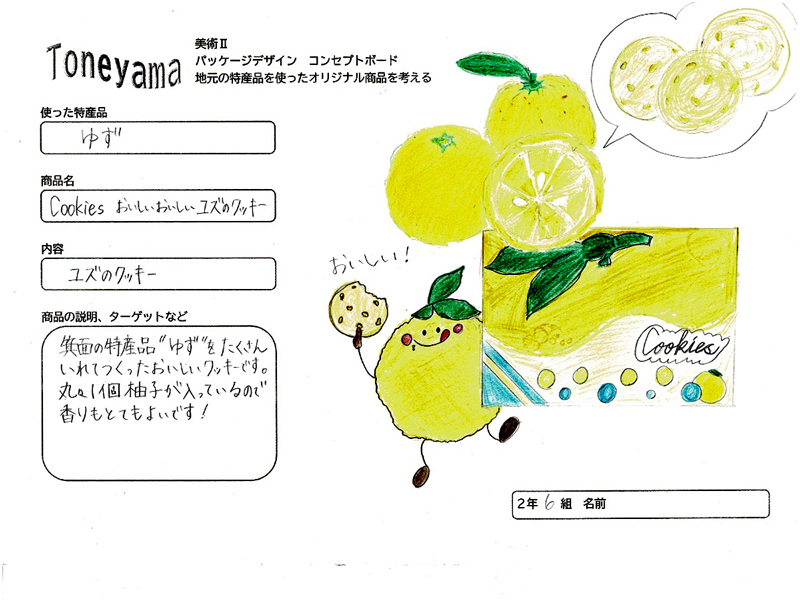 Toneyama
美術Ⅱ
パッケージデザイン　コンセプトボード
地元の特産品を使ったオリジナル商品を考える
使った特産品
ゆず
商品名
Cookies おいしいおいしいユズのクッキー
内容
ユズのクッキー
商品の説明、ターゲットなど
箕面の特産品"ゆず"をたくさん
いれてつくったおいしいクッキーです。
丸々1個柚子が入っているので
香りもとてもよいです！
おいしい！
Cookies
2年 6 組　名前